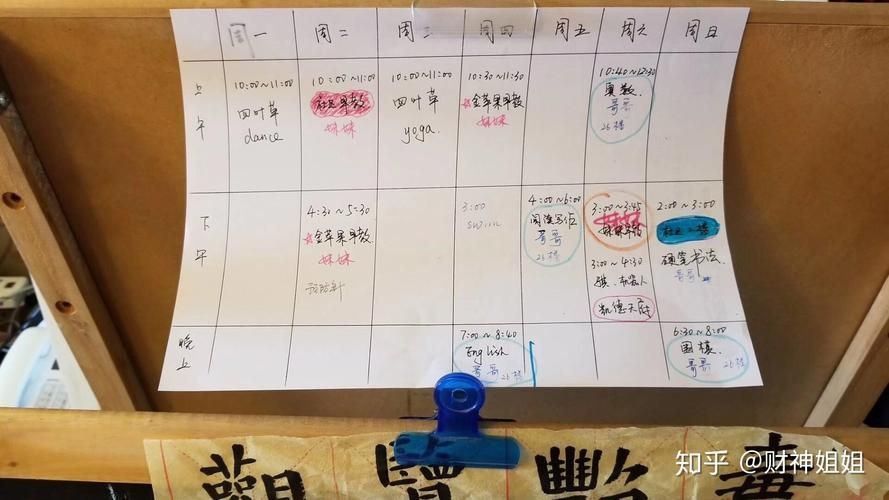 周一 周二 周三 周四 周五 周六 周日
上午
10:00~11:00
四叶草
dance
10:00~11:00
社区早教
妹妹
10:00~11:00
四叶草
yoga.
10:30~11:30
☆金苹果早教
妹妹
10:40~12:30
奥数.
哥哥
26楼
下午
4:30~5:30
☆金苹果早教
妹妹
预防针
3:00
swim
4:00~6:00
阅读写作
哥哥
26楼
3:00~3:45
妹妹早教
3:00~4:30
机器人
凯德天府
2:00~3:00
社区二楼
硬笔书法
哥哥
晚上
7:00~8:40
English
哥哥 26楼
6:30~8:00
围棋.
哥哥 26楼
觀寶艷毒
知乎 @财神姐姐